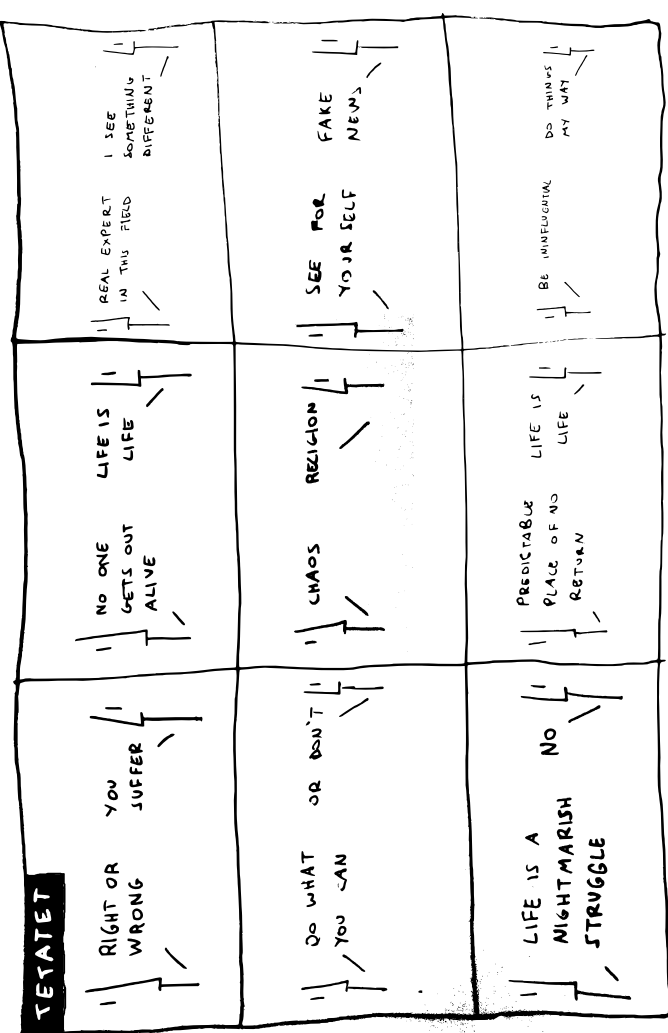 TETATET
RIGHT OR
WRONG
YOU
SUFFER
NO ONE
GETS OUT
ALIVE
LIFE IS
LIFE
REAL EXPERT
IN THIS FIELD
I SEE
SOMETHING
DIFFERENT
DO WHAT
YOU CAN
OR DON'T
CHAOS
RELIGION
SEE FOR
YOUR SELF
FAKE
NEWS
LIFE IS A
NIGHTMARISH
STRUGGLE
NO
PREDICTABLE
PLACE OF NO
RETURN
LIFE IS
LIFE
BE ININFLUENTIAL
DO THINGS
MY WAY